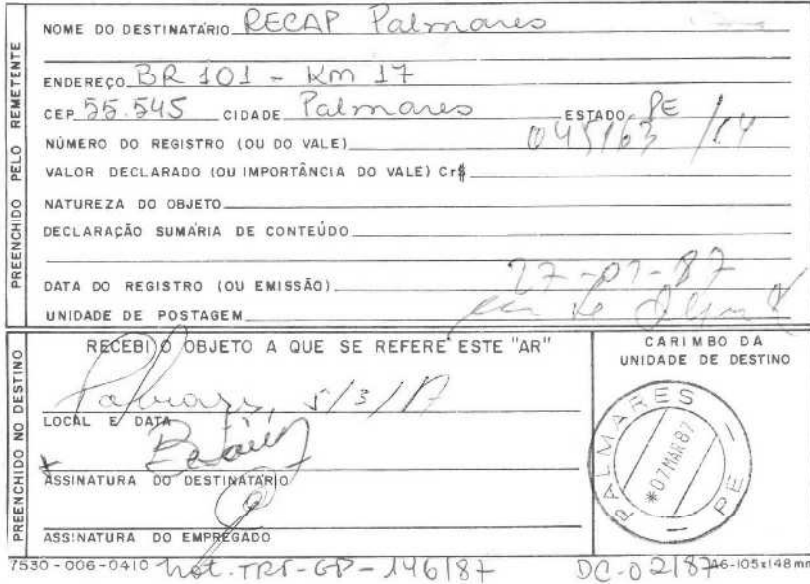 NOME DO DESTINATÁRIO RECAP Palmares
ENDEREÇO BR 101 - Km 17
CEP 55.545 CIDADE Palmares ESTADO PE
NÚMERO DO REGISTRO (OU DO VALE) 045163 /14
VALOR DECLARADO (OU IMPORTÂNCIA DO VALE) Cr$
NATUREZA DO OBJETO
DECLARAÇÃO SUMÁRIA DE CONTEÚDO
DATA DO REGISTRO (OU EMISSÃO) 27-01-87
UNIDADE DE POSTAGEM
PREENCHIDO PELO REMETENTE
RECEBI O OBJETO A QUE SE REFERE ESTE "AR"
Palmares, 5/3/87
LOCAL E DATA
ASSINATURA DO DESTINATÁRIO
ASSINATURA DO EMPREGADO
PREENCHIDO NO DESTINO
CARIMBO DA
UNIDADE DE DESTINO
PALMARES
*07 MAR 87
PE
7530-006-0410 Not. TRT-GP-146/87 DC-02/87 A6-105x148mm